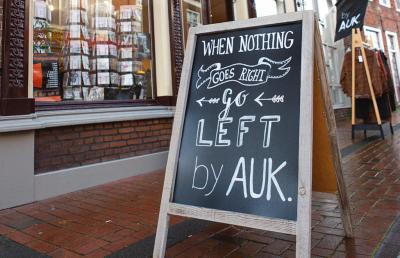 WHEN NOTHING
GOES RIGHT
GO
LEFT
by AUK.
by
AUK